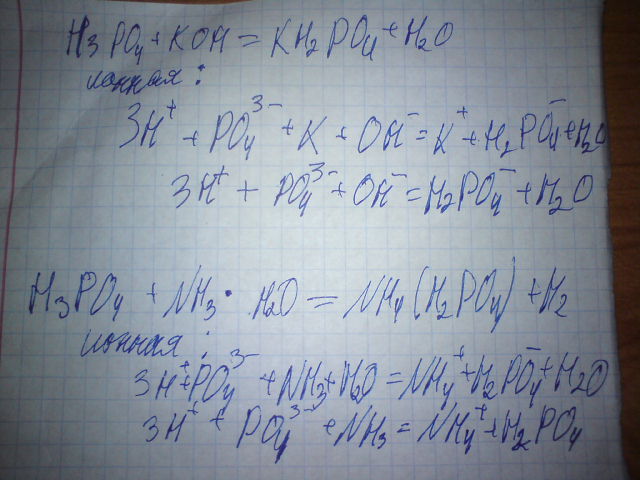 H₃PO₄ + KOH = KH₂PO₄ + H₂O
ионная:
3H⁺ + PO₄³⁻ + K + OH⁻ = K⁺ + H₂PO₄⁻ + H₂O
3H⁺ + PO₄³⁻ + OH⁻ = H₂PO₄⁻ + H₂O
H₃PO₄ + NH₃· H₂O = NH₄(H₂PO₄) + H₂
ионная:
3H⁺ + PO₄³⁻ + NH₃ + H₂O = NH₄⁺ + H₂PO₄⁻ + H₂O
3H⁺ + PO₄³⁻ + NH₃ = NH₄⁺ + H₂PO₄